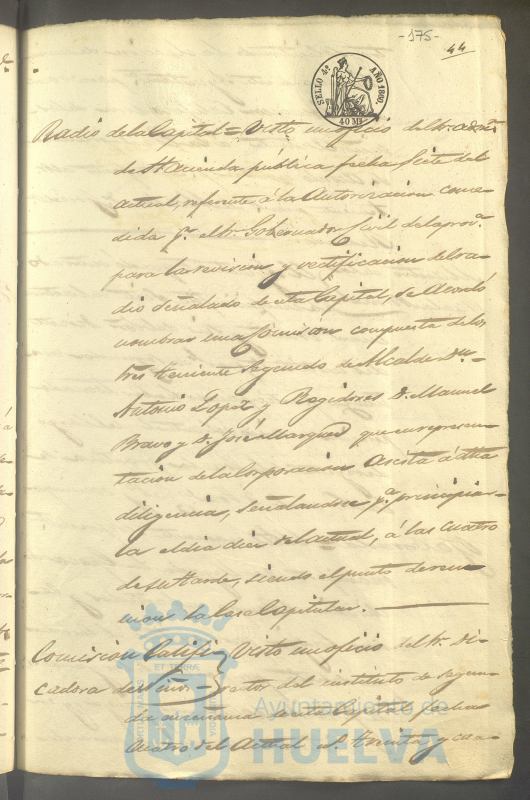 -175-
44
SELLO 4º AÑO 1860
40 Ms
Radio de la Capital = Visto un oficio del Sr. Admr.
de Hacienda pública fecha siete del
actual, referente á la Autorizacion conce-
dida pr. el Sr. Gobernador Civil de la prova.
para la revision y rectificacion del ra-
dio señalado de esta Capital, se acordó
nombrar una Comision compuesta de los
Sres Teniente Segundo de Alcalde Dn.
Antonio Lopez y Regidores D. Manuel
Bravo y D. José Marquez que en represen-
tacion de la Corporacion asista á dha
diligencia, señalandose pa. principiar-
la el dia diez del actual, á las cuatro
de su tarde, siendo el punto de reu-
nion la Casa Capitular.
Comision Califi- Visto un oficio del Sr. Di-
cadora de Niños - rector del instituto de segun-
da enseñanza de esta Capital fecha
cuatro del Actual nº treinta y cua-
ET TERRÆ
Ayuntamiento de
HUELVA